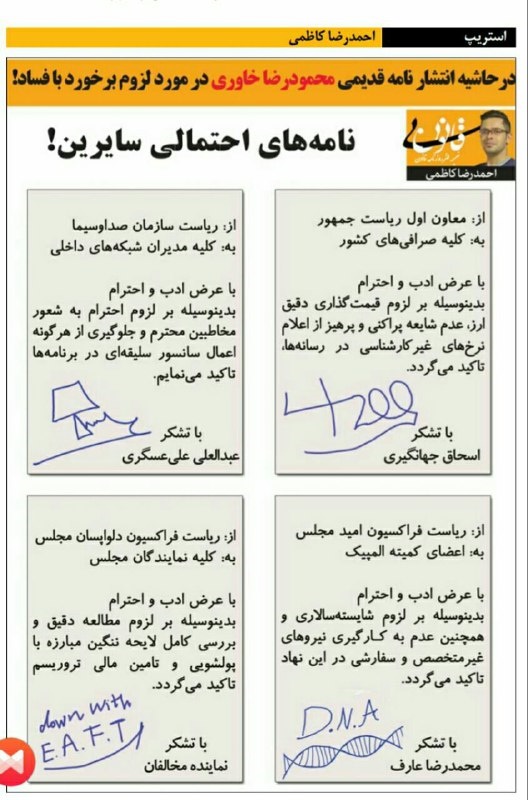 استریپ احمدرضا کاظمی
در حاشیه انتشار نامه قدیمی محمودرضا خاوری در مورد لزوم برخورد با فساد!
قانون
احمدرضا کاظمی
نامه‌های احتمالی سایرین!
از: معاون اول ریاست جمهور
به: کلیه صرافی‌های کشور
با عرض ادب و احترام
بدینوسیله بر لزوم قیمت‌گذاری دقیق
ارز، عدم شایعه پراکنی و پرهیز از اعلام
نرخ‌های غیرکارشناسی در رسانه‌ها،
تاکید می‌گردد.
4200
با تشکر
اسحاق جهانگیری
از: ریاست سازمان صداوسیما
به: کلیه مدیران شبکه‌های داخلی
با عرض ادب و احترام
بدینوسیله بر لزوم احترام به شعور
مخاطبین محترم و جلوگیری از هرگونه
اعمال سانسور سلیقه‌ای در برنامه‌ها
تاکید می‌نمایم.
با تشکر
عبدالعلی علی‌عسگری
از: ریاست فراکسیون امید مجلس
به: اعضای کمیته المپیک
با عرض ادب و احترام
بدینوسیله بر لزوم شایسته‌سالاری و
همچنین عدم به کارگیری نیروهای
غیرمتخصص و سفارشی در این نهاد
تاکید می‌گردد.
D.N.A
با تشکر
محمدرضا عارف
از: ریاست فراکسیون دلواپسان مجلس
به: کلیه نمایندگان مجلس
با عرض ادب و احترام
بدینوسیله بر لزوم مطالعه دقیق و
بررسی کامل لایحه ننگین مبارزه با
پولشویی و تامین مالی تروریسم
تاکید می‌گردد.
down with
E.A.F.T
با تشکر
نماینده مخالفان